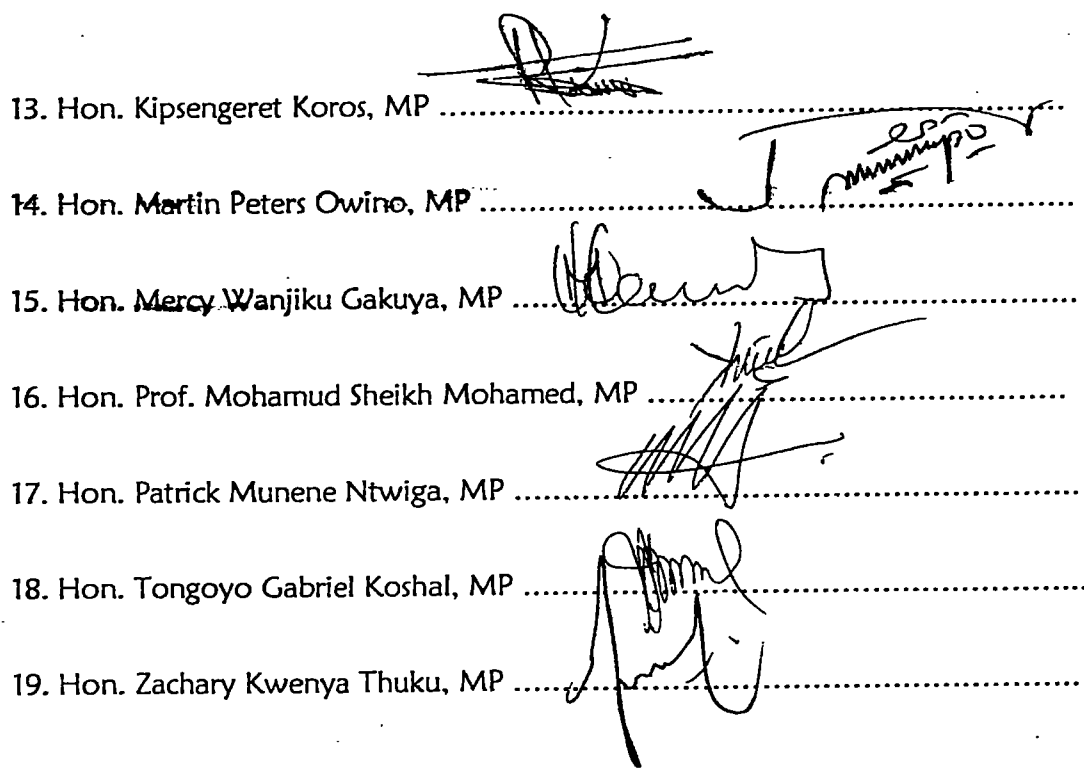 13. Hon. Kipsengeret Koros, MP ................................................................
14. Hon. Martin Peters Owino, MP ................................................................
15. Hon. Mercy Wanjiku Gakuya, MP ................................................................
16. Hon. Prof. Mohamud Sheikh Mohamed, MP ................................................................
17. Hon. Patrick Munene Ntwiga, MP ................................................................
18. Hon. Tongoyo Gabriel Koshal, MP ................................................................
19. Hon. Zachary Kwenya Thuku, MP ................................................................